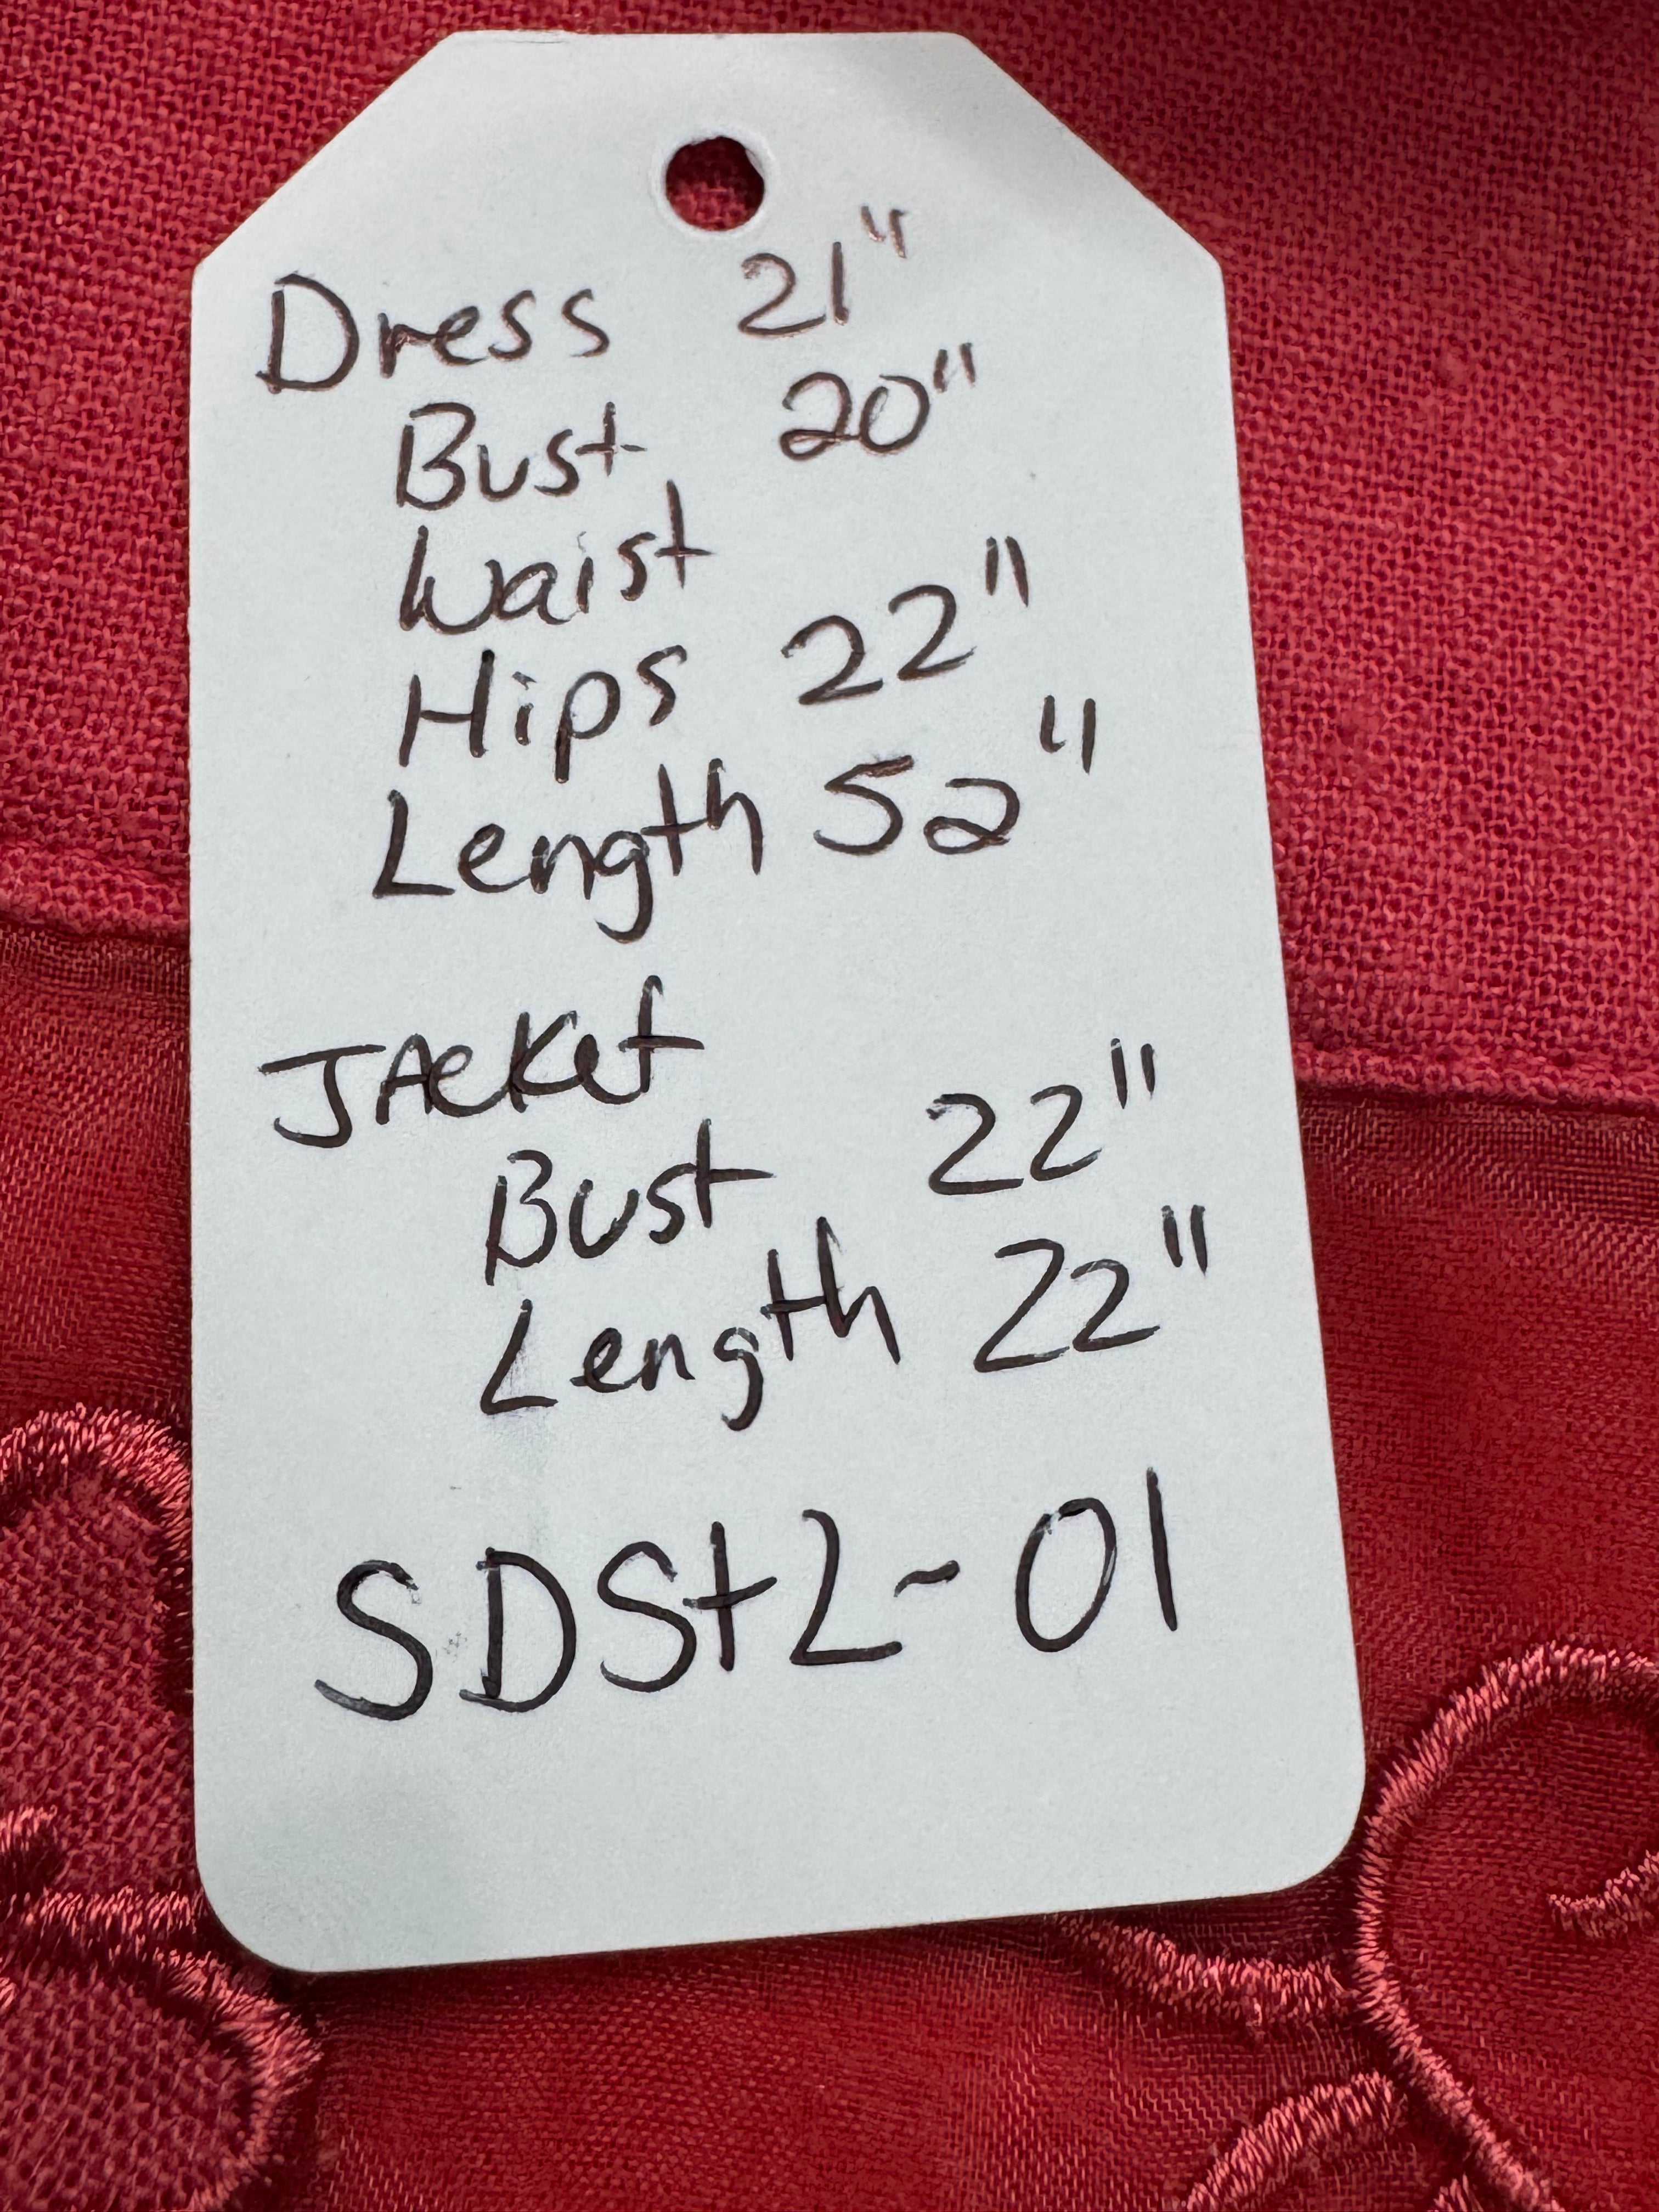 Dress 21"
Bust 20"
Waist
Hips 22"
Length 52"
JAcket
Bust 22"
Length 22"
SDSt2-01